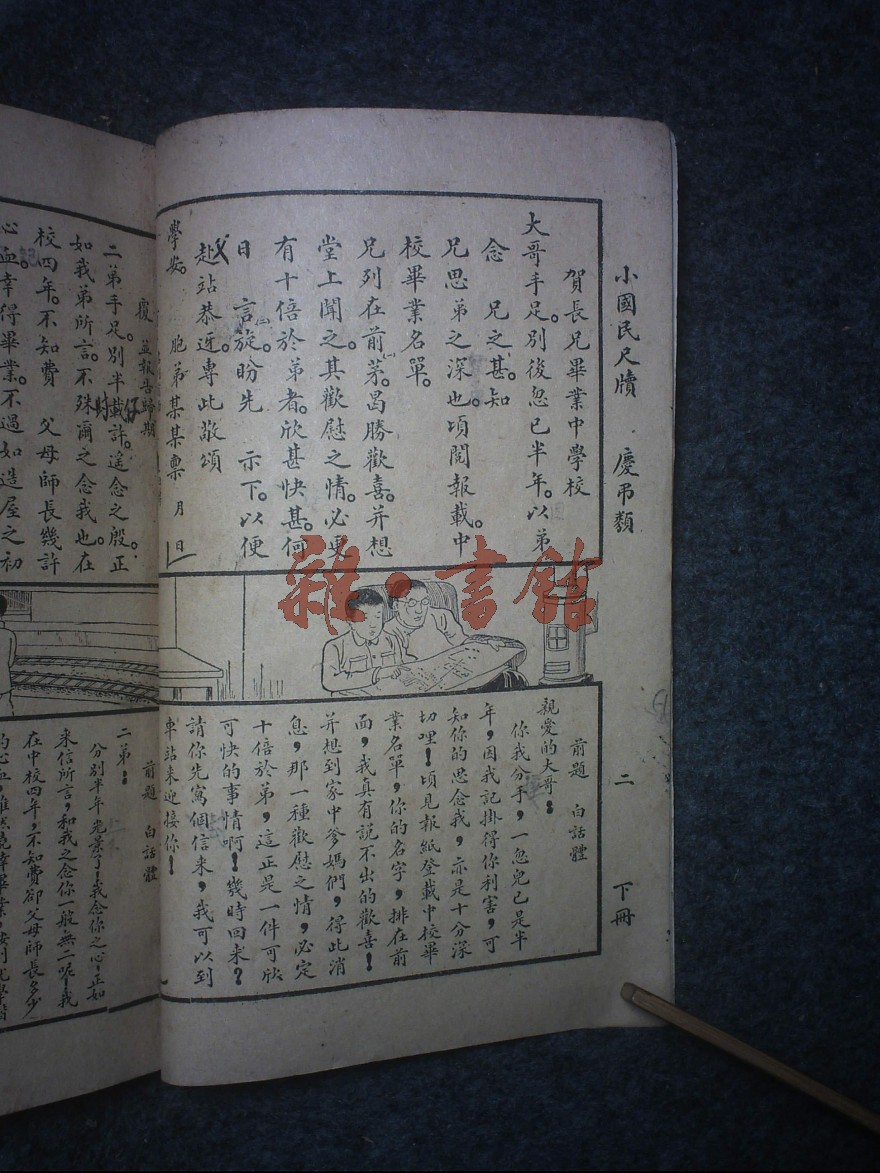 小國民尺牘 慶弔類 二 下冊
賀長兄畢業中學校
大哥手足。別後忽已半年。以弟
念 兄之甚。知
兄思弟之深也。頃閱報載中
校畢業名單。
兄列在前茅。曷勝歡喜。并想
堂上聞之。其歡慰之情。必更
有十倍於弟者。欣甚快甚。何
日 言旋。盼先 示下。以便
赴站恭迓。專此敬頌
學安。 胞弟某某稟 月 日
雜·書館
前題 白話體
親愛的大哥：
你我分手，一忽兒已是半
年，因我記掛得你利害，可
知你的思念我，亦是十分深
切哩！頃見報紙登載中校畢
業名單，你的名字，排在前
面，我真有說不出的歡喜！
并想到家中爹媽們，得此消
息，那一種歡慰之情，必定
十倍於弟，這正是一件可欣
可快的事情啊！幾時回來？
請你先寫個信來，我可以到
車站來迎接你！
覆 並報告歸期
二弟手足。別半載許。遙念之殷。正
如我弟所言。不殊爾之念我也。在
校四年。不知費 父母師長幾許
心血。幸得畢業。不過如造屋之初
前題 白話體
二弟：
分別半年光景了！我念你之心，正如
來信所言，和我之念你一般無二呢！我
在中校四年，不知費卻父母師長多少
的心血，雖然僥幸畢業，